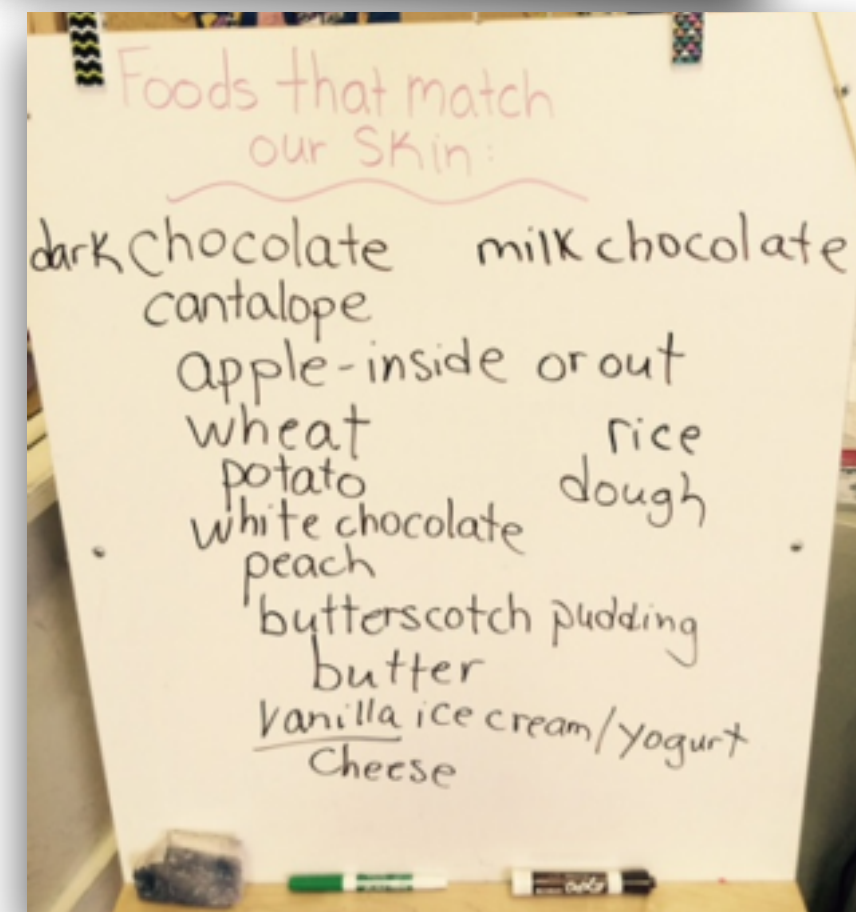 Foods that match
our Skin:
dark chocolate milk chocolate
cantalope
apple-inside or out
wheat rice
potato dough
white chocolate
peach
butterscotch pudding
butter
Vanilla ice cream/yogurt
Cheese
EXPO